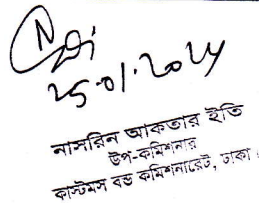 25.01.2024
নাসরিন আকতার ইতি
উপ-কমিশনার
কাস্টমস বন্ড কমিশনারেট, ঢাকা।